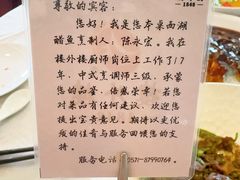 1848
尊敬的宾客:
您好!我是您本桌西湖
醋鱼烹制人:陈永宏。我在
楼外楼厨师岗位上工作了1
7年,中式烹调师三级,承蒙
您的品鉴,倍感荣幸!若您
对菜品有任何建议,欢迎您
提出宝贵意见。期待以更优
质的佳肴与服务回馈您的支
持。
服务电话:0571-87990764.